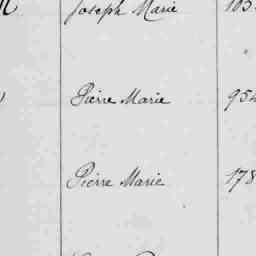 Joseph Marie
Pierre Marie 954
Pierre Marie 178